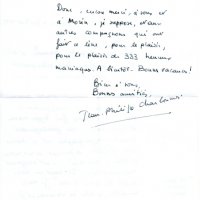 Donc, encore merci, à vous et
à Morin, je suppose, et aux
autres compagnons qui ont
fait ce livre, pour le plaisir,
pour le plaisir de 333 heureux
maniaques. A bientôt. Bonnes vacances!
Bien à vous,
Bonnes amitiés,
Jean-Philippe